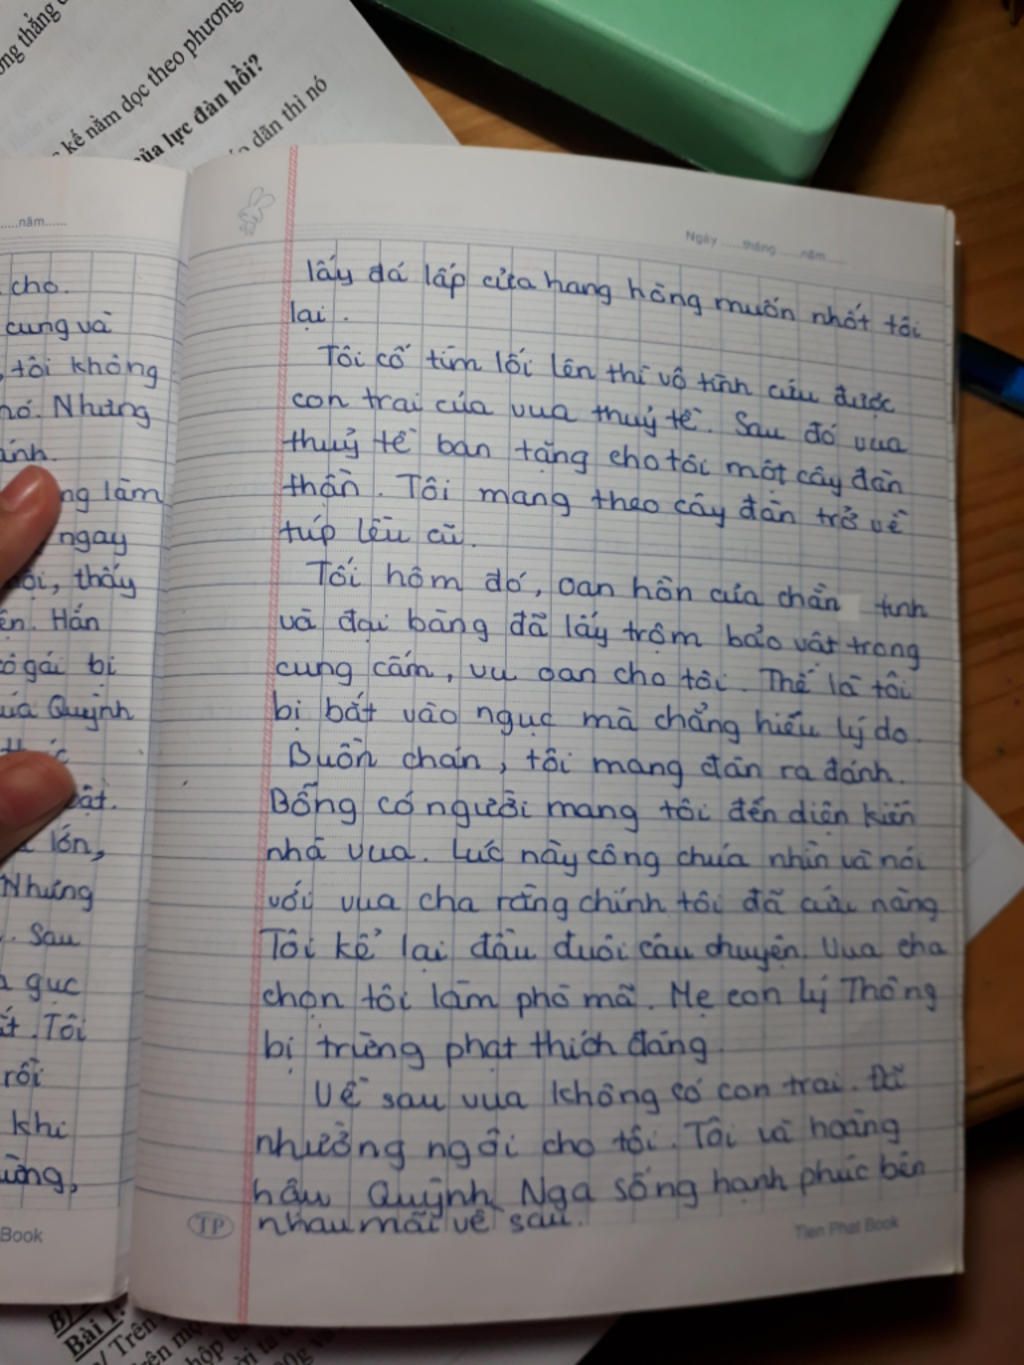 ng thẳng
kế nằm dọc theo phương
của lực đàn hồi?
dãn thì nó
.....năm......
cho.
cung và
tôi không
nó. Nhưng
ánh.
ng làm
ngay
ội, thấy
ên. Hắn
cô gái bị
uá Quỳnh
ật.
lớn,
Nhưng
. Sau
gục
ắt. Tôi
rồi
khi
ường,
Book
Ngày ......tháng ......năm......
lấy đá lấp cửa hang hòng muốn nhốt tôi
lại.
Tôi cố tìm lối lên thì vô tình cứu được
con trai của vua thuỷ tề. Sau đó vua
thuỷ tề ban tặng cho tôi một cây đàn
thần. Tôi mang theo cây đàn trở về
túp lều cũ.
Tối hôm đó, oan hồn của chằn tinh
và đại bàng đã lấy trộm bảo vật trong
cung cấm, vu oan cho tôi. Thế là tôi
bị bắt vào ngục mà chẳng hiểu lý do.
Buồn chán, tôi mang đàn ra đánh.
Bỗng có người mang tôi đến diện kiến
nhà vua. Lúc này công chúa nhìn và nói
với vua cha rằng chính tôi đã cứu nàng
Tôi kể lại đầu đuôi câu chuyện. Vua cha
chọn tôi làm phò mã. Mẹ con Lý Thông
bị trừng phạt thích đáng
Về sau vua không có con trai. Đã
nhường ngôi cho tôi. Tôi và hoàng
hậu Quỳnh Nga sống hạnh phúc bên
nhau mãi về sau.
TP
Tien Phat Book
B)
Bài 1:
/ Trên
rên mộ
hộp b